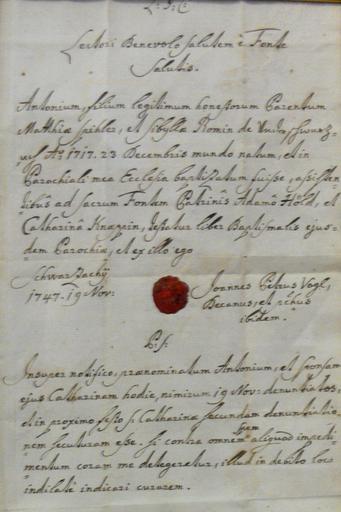 Lectori Benevolo salutem è Fonte
Salutis.
Antonium, filium legitimum honestorum Parentum
Matthiæ Spihler, et Sibyllæ Romin de
A° 1717. 23 Decembris mundo natum, et in
Parochiali mea Ecclesia baptizatum fuisse, assisten
tibus ad sacrum Fontem Patrinis Adamo et
Catharina Knappin, testatur liber Baptismalis ejus-
dem Parochiæ, et ex illo ego
Schwarzachij
1747. 19 Nov:
Joannes Petrus Vogl,
Decanus, et
ibidem.
P.S.
Insuper notifico, prænominatum Antonium, et sponsam
ejus Catharinam hodie, nimirum 19 Nov: denuntiatos,
et in proximo festo S. Catharinæ secundam denuntiatio-
nem secuturam esse. Si contra omnem spem aliquod impedi-
mentum coram me detegeretur, illud in debito loco
indilatè indicari curarem.